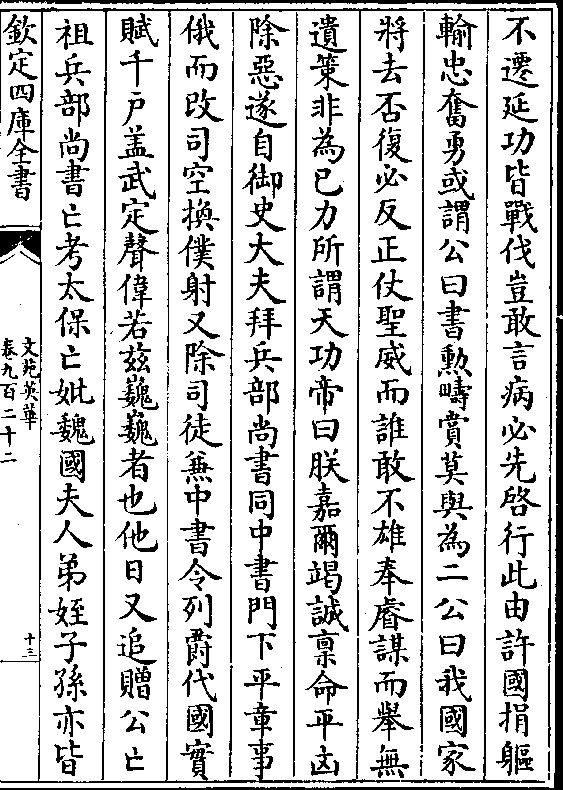 不遷延功皆戰伐豈敢言病必先啓行此由許國捐軀
輸忠奮勇或謂公曰書勲疇賞莫與為二公曰我國家
將去否復必反正仗聖威而誰敢不雄奉睿謀而舉無
遺策非為已力所謂天功帝曰朕嘉爾竭誠禀命平凶
除惡遂自御史大夫拜兵部尚書同中書門下平章事
俄而改司空換僕射又除司徒兼中書令列爵代國實
賦千戶盖武定聲偉若兹巍巍者也他日又追贈公亡
祖兵部尚書亡考太保亡妣魏國夫人弟姪子孫亦皆
欽定四庫全書
文苑英華
卷九百二十二
十三